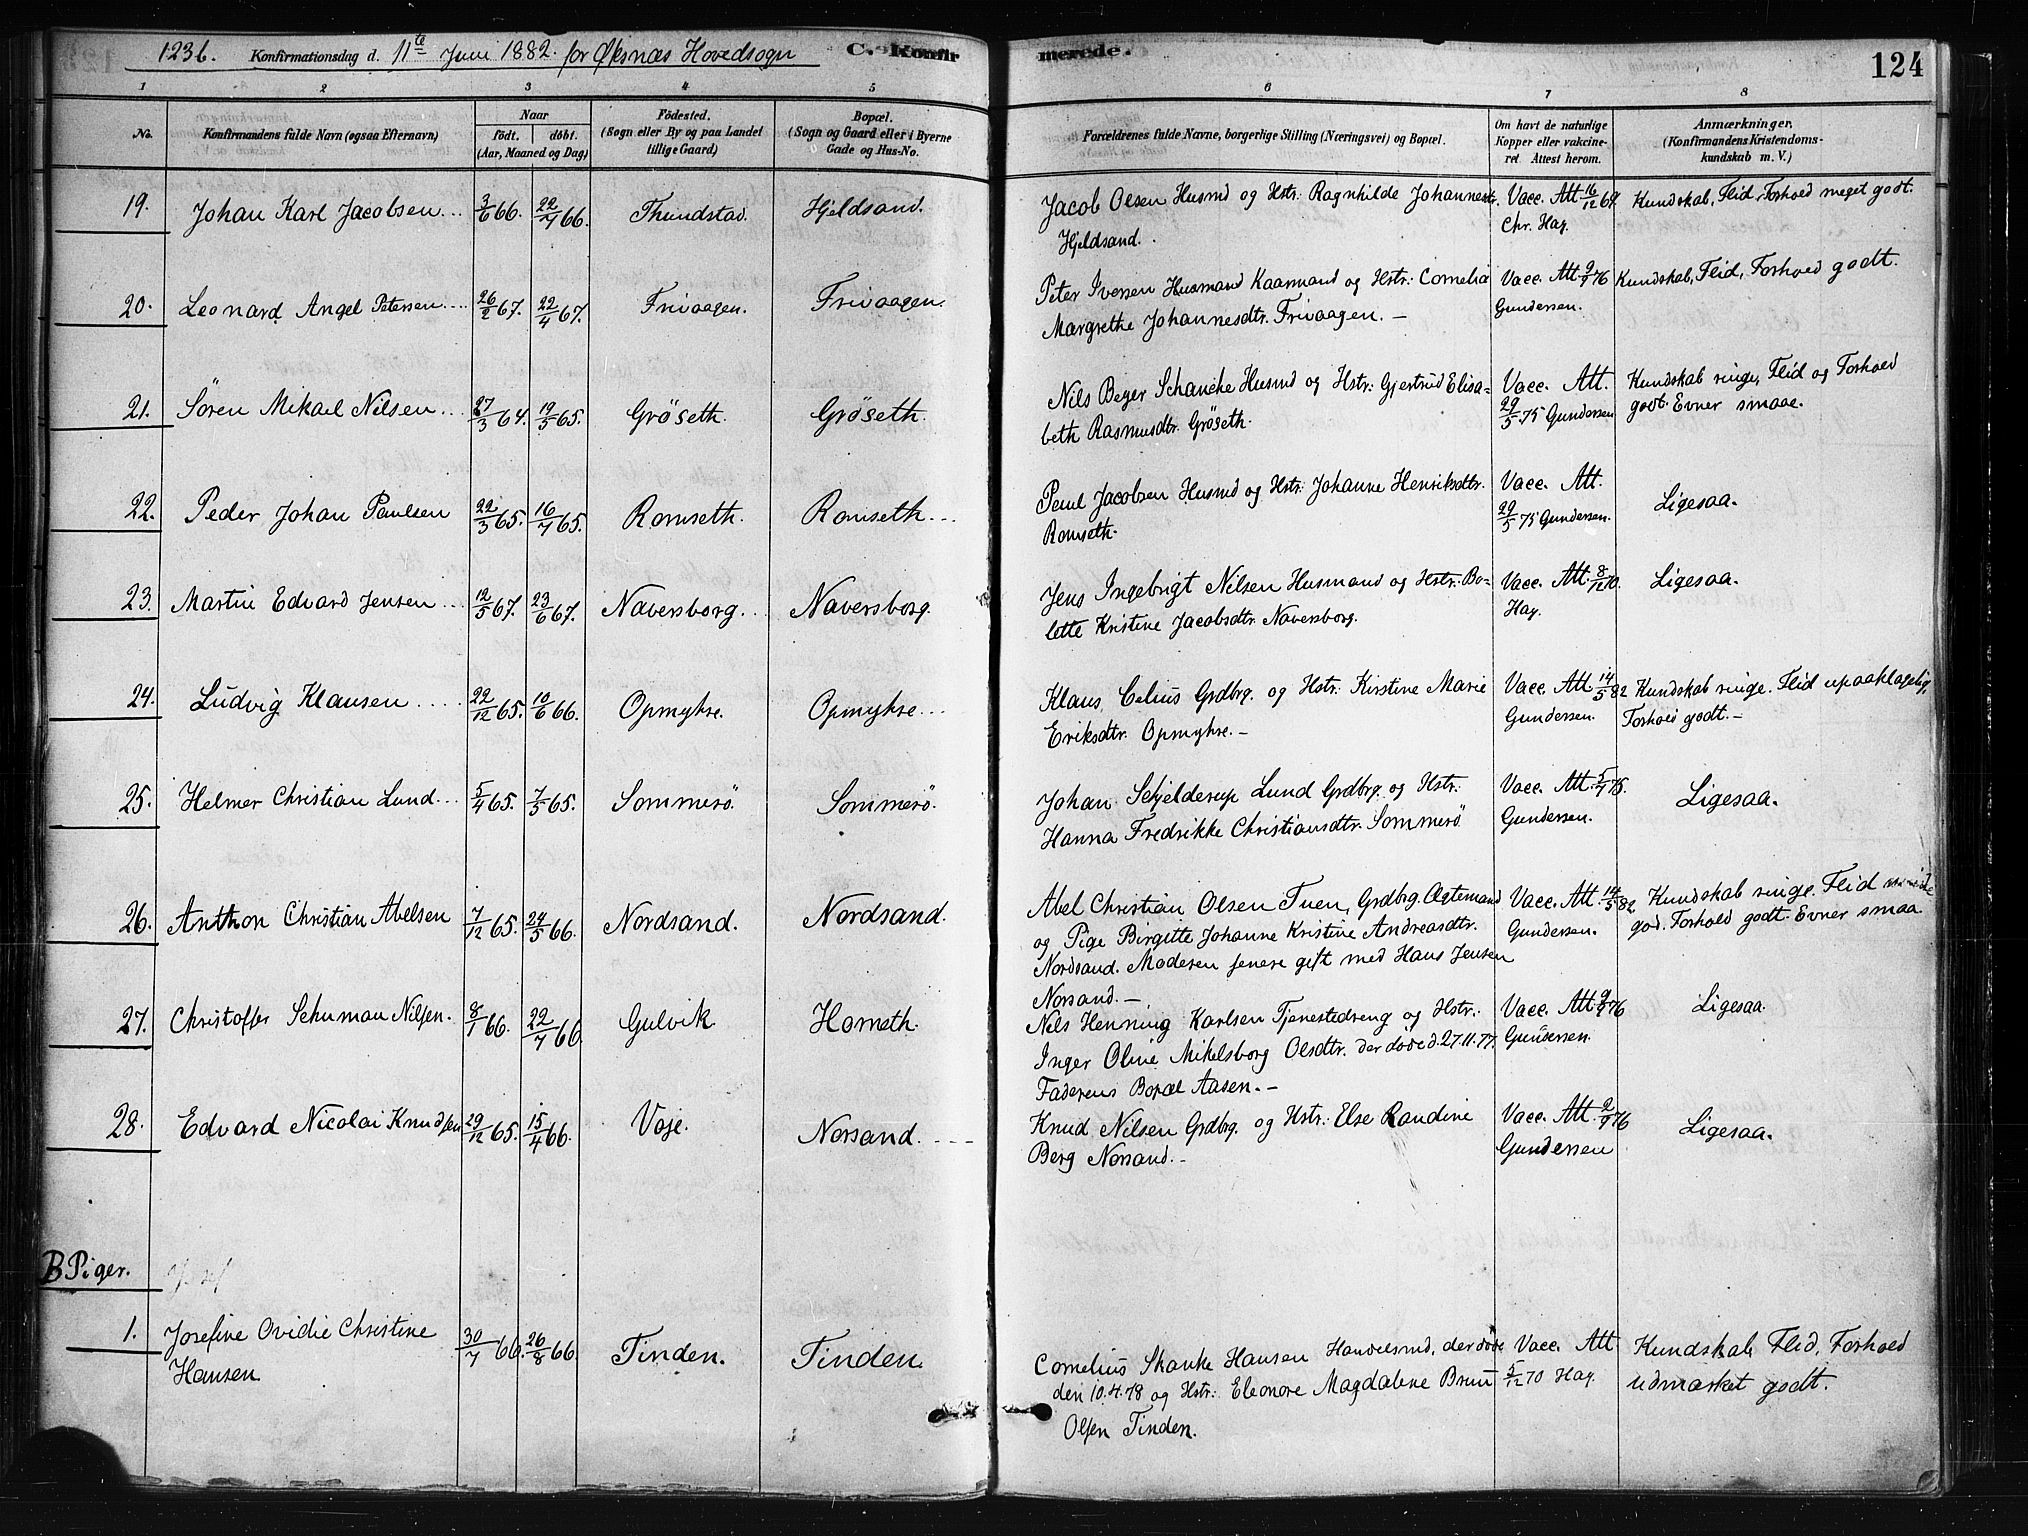 123b. Konfirmationsdag d. 11te Juni 1882. for Øksnæs Hovedsogn C. Konfirmerede. 124
1 2 3 4 5 6 7 8
No.
Konfirmandens fulde Navn (ogsaa Efternavn)
Naar
födt. döbt.
(Aar, Maaned og Dag)
Födested.
(Sogn eller By og paa Landet
tillige Gaard)
Bopæl.
(Sogn og Gaard eller i Byerne
Gade og Hus-No.
Forældrenes fulde Navne, borgerlige Stilling (Næringsvei) og Bopæl.
Om havt de naturlige
Kopper eller vakcine-
ret. Attest herom.
Anmærkninger.
(Konfirmandens Kristendoms-
kundskab m. V.)
19. Johan Karl Jacobsen... 3/6 66. 22/7 66. Thundstad. Hjeldsand. Jacob Olsen Husmd og Hstr: Ragnhilde Johannesdtr. Vacc. Att 16/12 69. Kundskab, Flid, Forhold meget godt.
Hjeldsand. Chr. Hag.
20. Leonard Angel Petersen.... 26/2 67. 22/4 67. Frivaagen. Frivaagen. Peter Iversen Husmand Kaarmand og Hstr: Cornelia Vacc. Att 9/9 76 Kundskab, Flid, Forhold godt.
Margrethe Johannesdtr. Frivaagen. – Gundersen.
21. Sören Mikael Nilsen... 27/3 64. 19/5 65. Gröseth. Gröseth. Nils Beyer Schancke Husmd og Hstr: Gjertrud Elisa- Vacc. Att. Kundskab ringe, Flid og Forhold
beth Rasmusdtr. Gröseth. 29/5 75 Gundersen godt. Evner smaae.
22. Peder Johan Paulsen 22/3 65. 16/7 65. Romseth. Romseth... Poul Jacobsen Husmd og Hstr: Johanne Henriksdtr. Vacc. Att. Ligesaa.
Romseth. 29/5 75 Gundersen.
23. Martin Edvard Jensen... 12/5 67. 23/6 67. Naversborg... Naversborg. Jens Ingebrigt Nilsen Husmand og Hstr: Bo- Vacc. Att. 8/12 70. Ligesaa.
lette Kristine Jacobsdtr. Naversborg. Hag.
24. Ludvig Klausen.... 22/12 65. 10/6 66. Opmyhre. Opmyhre... Klaus Celius Grdbrg. og Hstr: Kirstine Marie Vacc. Att 14/5 82 Kundskab ringe. Flid upaaklagelig,
Eriksdtr. Opmyhre. – Gundersen. Forhold godt. –
25. Helmer Christian Lund... 5/4 65. 7/5 65. Sommerö. Sommerö. Johan Schjelderup Lund Grdbrg. og Hstr: Vacc. Att. 5/7 75. Ligesaa.
Hanna Fredrikke Christiansdtr. Sommerö Gundersen.
26. Anthon Christian Abelsen 7/12 65. 24/5 66. Nordsand. Nordsand. Abel Christian Olsen Tuen, Grdbrg. Ægtemand Vacc. Att. 14/5 82. Kundskab ringe. Flid mindre
og Pige Birgitte Johanne Kristine Andreasdtr. Gundersen. god. Forhold godt. Evner smaa
Nordsand. Moderen senere gift med Hans Jensen
Norsand. –
27. Christoffer Schuman Nilsen. 8/1 66. 22/7 66 Gulvik Homsth. Nils Henning Karlsen Tjenestedreng og Hstr: Vacc. Att. 9/9 76 Ligesaa.
Inger Oline Mikelsborg Olsdtr. der döde d. 27.11.77. Gundersen.
Faderens Bopæl Aasen. –
28. Edvard Nicolai Knudsen 29/12 65. 15/4 66. Voje. Norsand.... Knud Nilsen Grdbrg. og Hstr: Else Randine Vacc. Att. 9/9 76 Ligesaa.
Berg Norsand. – Gundersen
B Piger.
1. Josefine Ovidie Christine 30/7 66. 26/8 66. Tinden. Tinden. Cornelius Skanke Hansen Handelsmd, der döde Vacc. Att Kundskab, Flid, Forhold
Hansen. den 10.4.78 og Hstr: Eleonore Magdalene Bruu 5/12 70 Hag. udmærket godt.
Olsen Tinden.